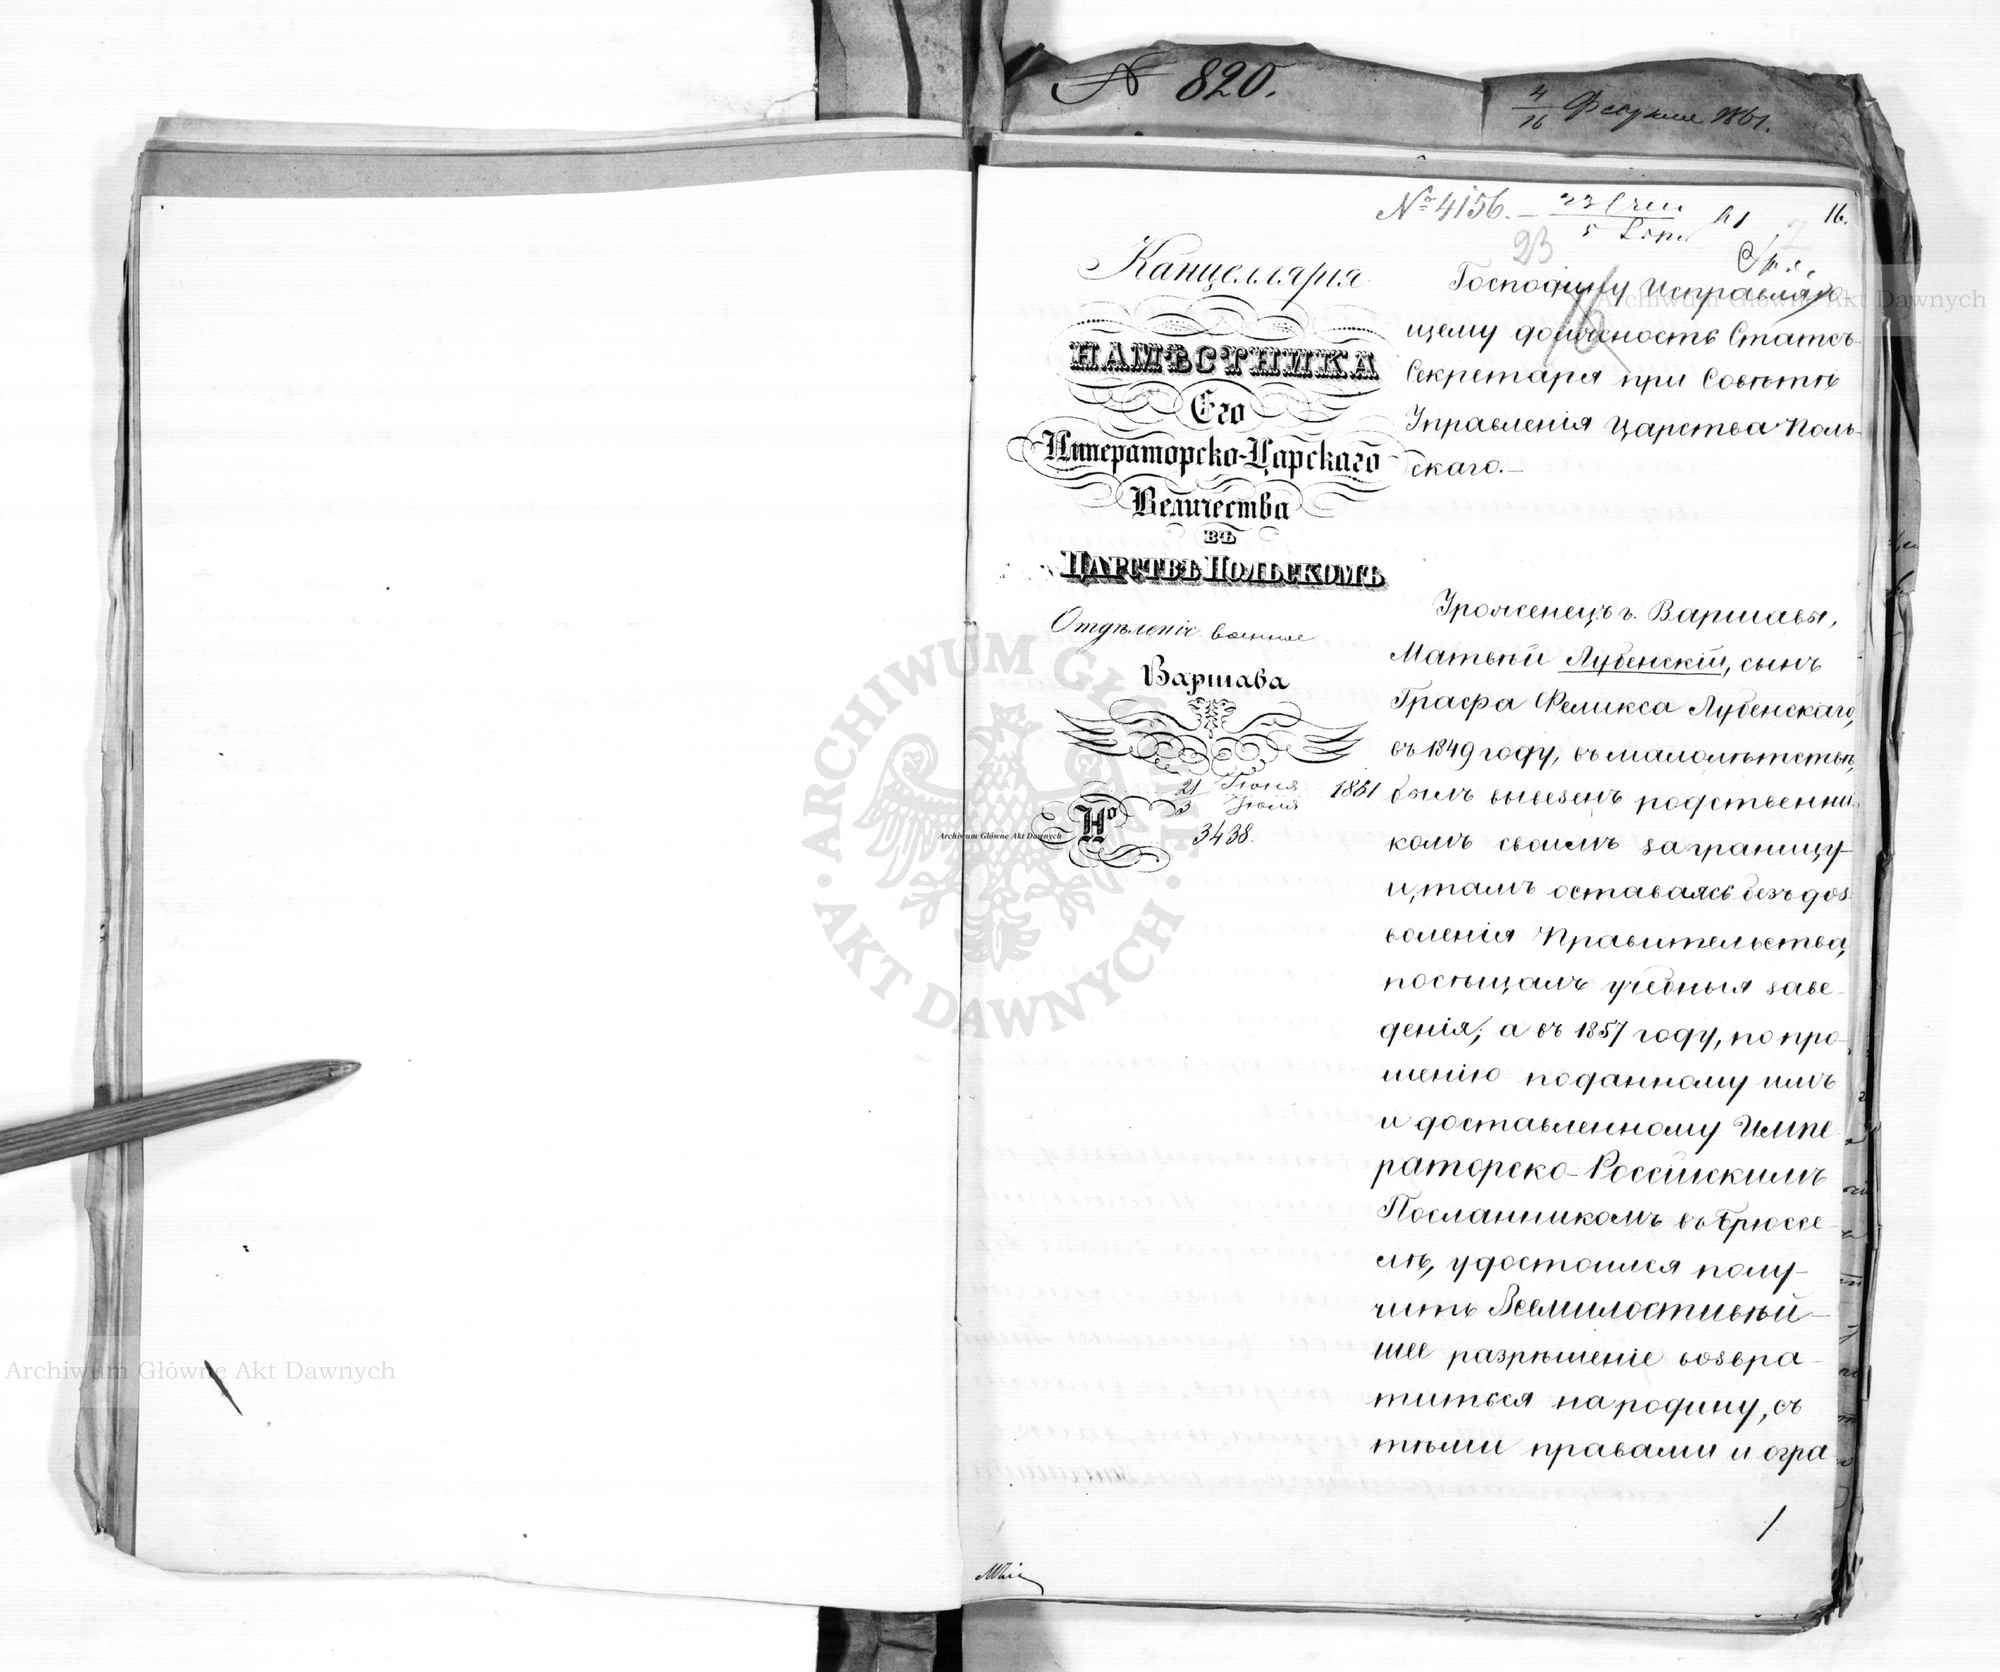 № 820.
4/16 Февраля 1861.
№ 4156. 61 16.
23
Канцелярія
НАМѢСТНИКА
Его
Императорско-Царскаго
Величества
въ
ЦАРСТВѢ ПОЛЬСКОМЪ
Отдѣленіе военное
Варшава
21 Іюня 1861
3 Іюля
№ 3438.
Господину Исправляю-
щему должность Статсъ-
Секретаря при Совѣтѣ
Управленія Царства Поль-
скаго.—
Уроженецъ г. Варшавы,
Матвѣй Лубенскій, сынъ
Графа Феликса Лубенскаго,
въ 1849 году, въ малолѣтствѣ,
былъ вывезенъ родственни-
комъ своимъ за границу
и, тамъ оставаясь безъ доз-
воленія Правительства,
посѣщалъ учебныя заве-
денія; а въ 1857 году, по про-
шенію поданному имъ
и доставленному Импе-
раторско-Россійскимъ
Посланникомъ въ Брюссе-
лѣ, удостоился полу-
чить Всемилостивѣй-
шее разрѣшеніе возвра-
титься на родину, съ
тѣми правами и огра-
1
ARCHIWUM GŁÓWNE AKT DAWNYCH
Archiwum Główne Akt Dawnych
Archiwum Główne Akt Dawnych
Archiwum Główne Akt Dawnych